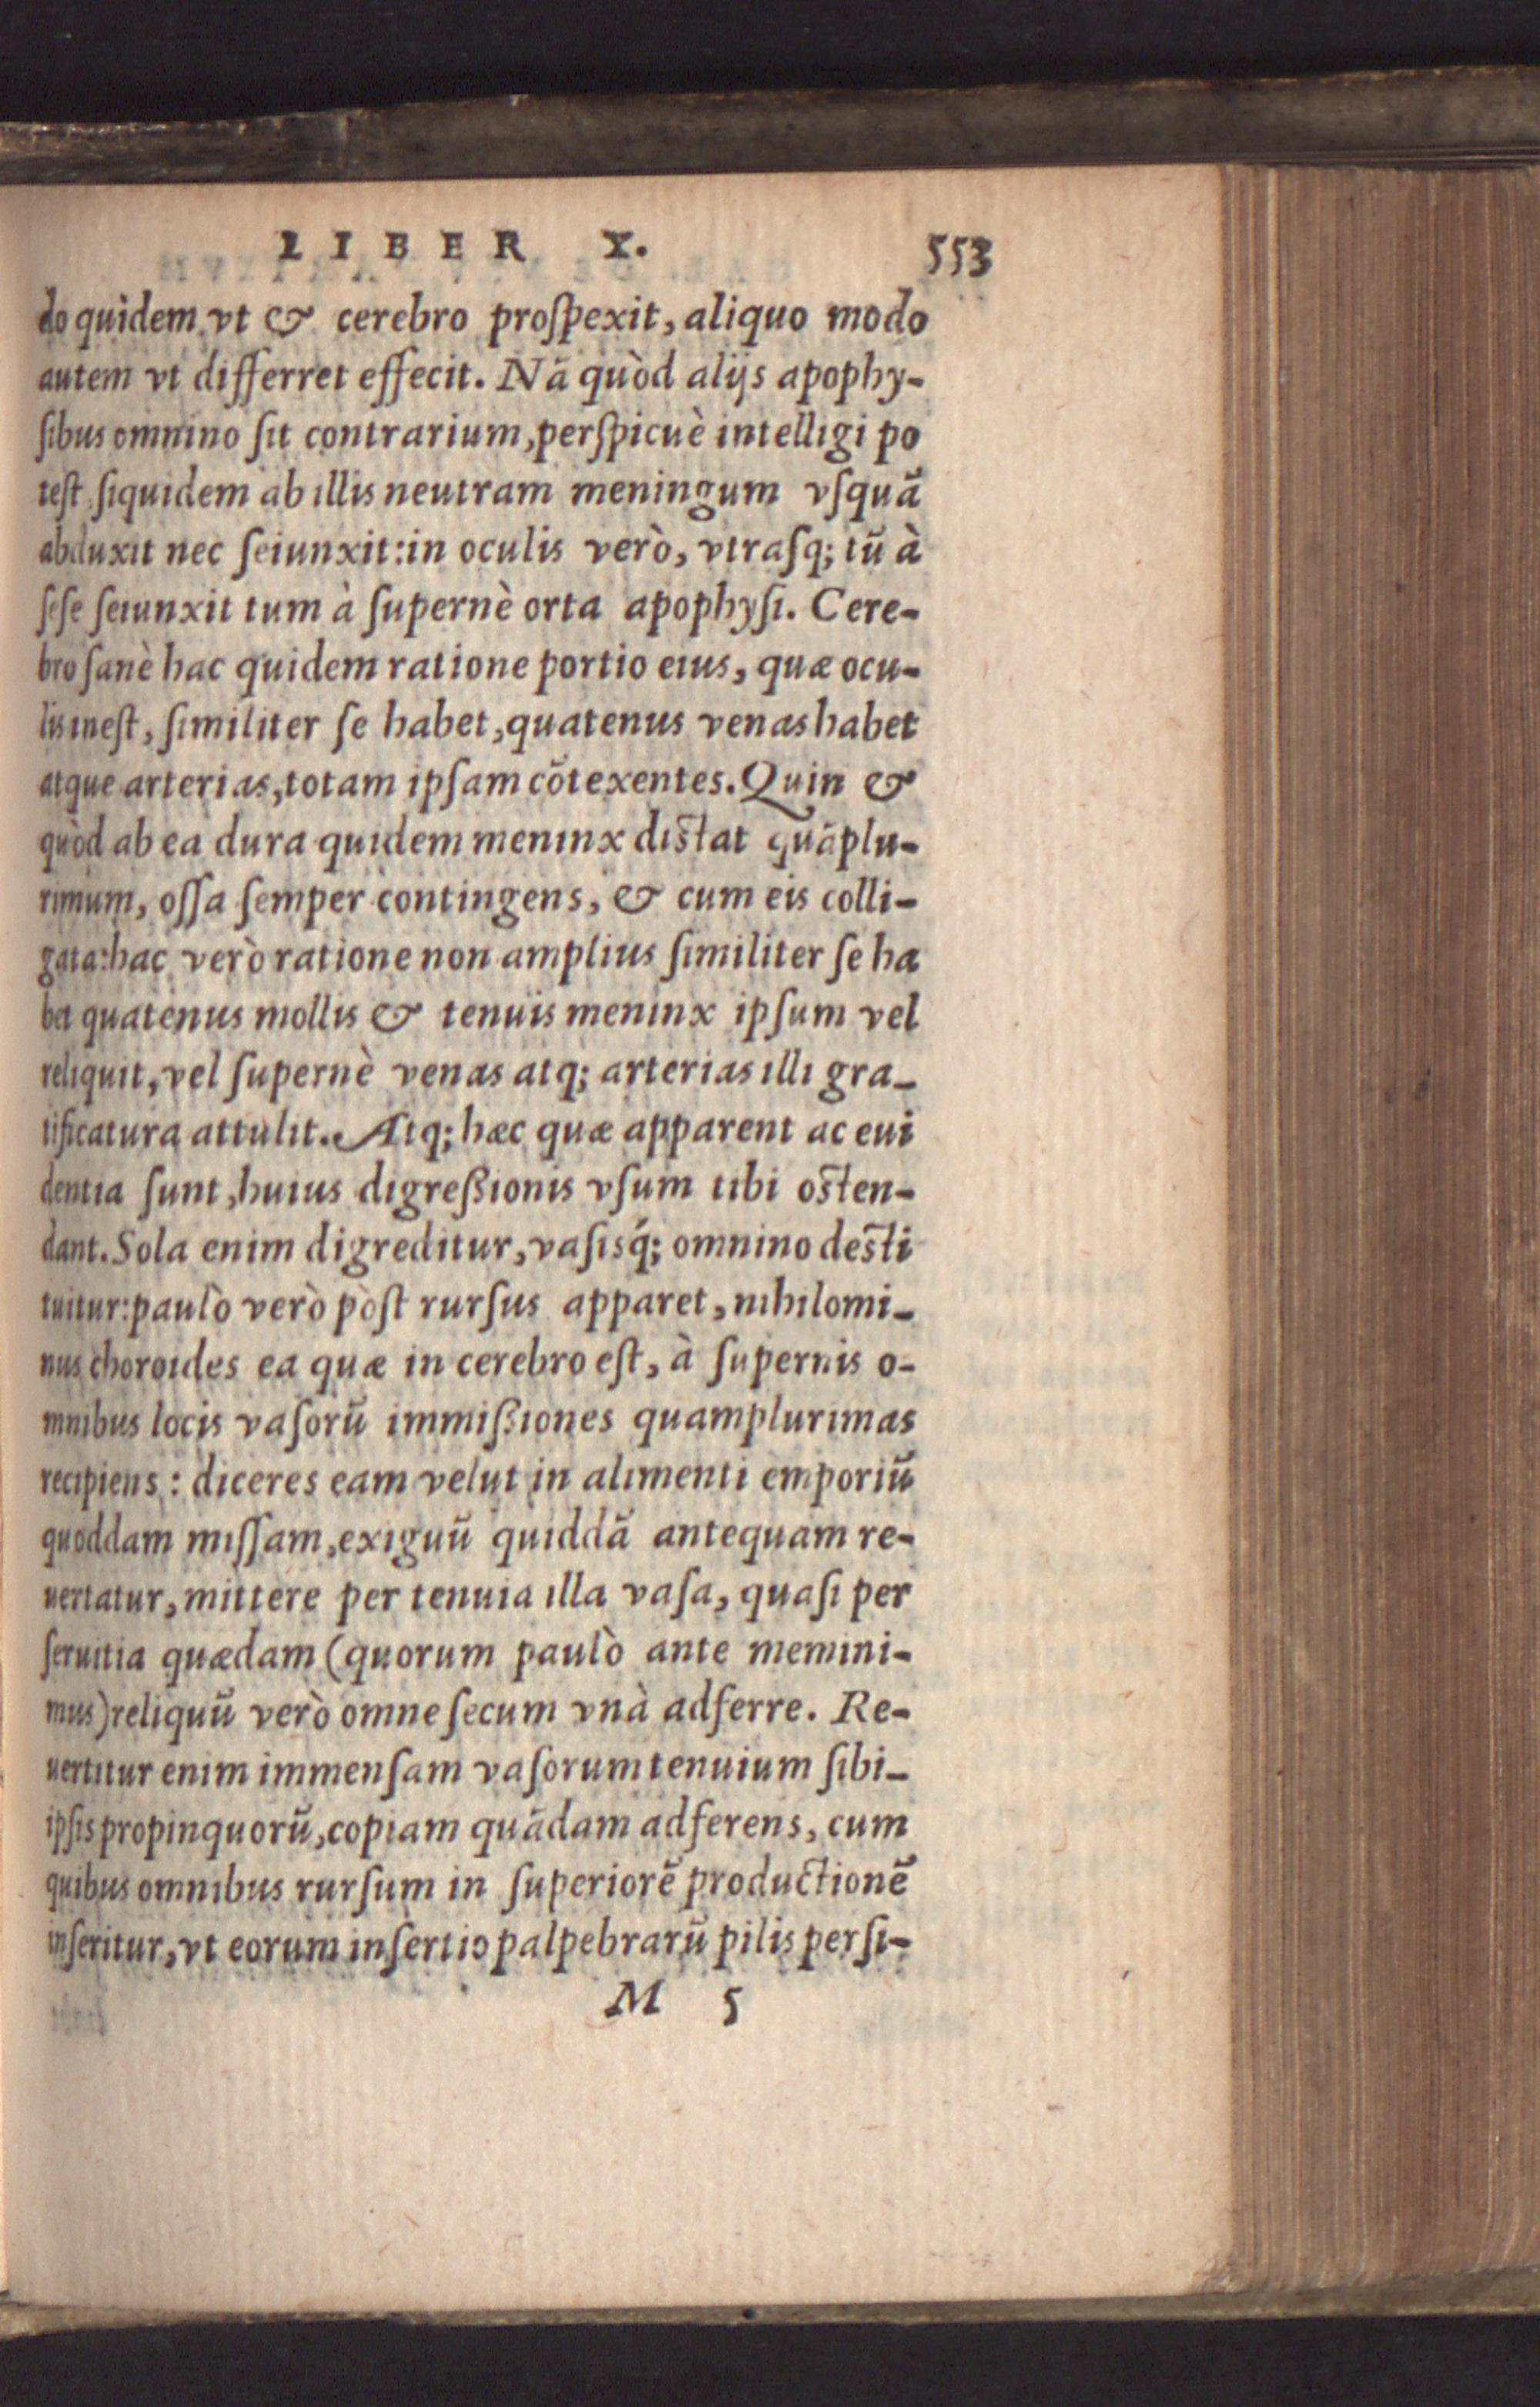 LIBER X. 553
do quidem vt & cerebro proſpexit, aliquo modo
autem vt differret effecit. Nā quòd alijs apophy-
ſibus omnino ſit contrarium, perſpicuè intelligi po
teſt ſiquidem ab illis neutram meningum vſquā
abduxit nec ſeiunxit: in oculis verò, vtraſq; tū à
ſeſe ſeiunxit tum à ſupernè orta apophyſi. Cere-
bro ſanè hac quidem ratione portio eius, quæ ocu-
lis ineſt, ſimiliter ſe habet, quatenus venas habet
atque arterias, totam ipſam cōtexentes. Quin &
quòd ab ea dura quidem meninx diſtat quāplu-
rimum, oſſa ſemper contingens, & cum eis colli-
gata: hac verò ratione non amplius ſimiliter ſe ha
bet quatenus mollis & tenuis meninx ipſum vel
reliquit, vel ſupernè venas atq; arterias illi gra-
tificatura attulit. Atq; hæc quæ apparent ac eui
dentia ſunt, huius digreßionis vſum tibi oſten-
dant. Sola enim digreditur, vaſisq́; omnino deſti
tuitur: paulò verò pòſt rurſus apparet, nihilomi-
nus choroides ea quæ in cerebro eſt, à ſupernis o-
mnibus locis vaſorū immißiones quamplurimas
recipiens: diceres eam velut in alimenti emporiū
quoddam miſſam, exiguū quiddā antequam re-
uertatur, mittere per tenuia illa vaſa, quaſi per
ſeruitia quædam (quorum paulò ante memini-
mus) reliquū verò omne ſecum vnà adferre. Re-
uertitur enim immenſam vaſorum tenuium ſibi-
ipſis propinquorū, copiam quādam adferens, cum
quibus omnibus rurſum in ſuperiorē productionē
inſeritur, vt eorum inſertio palpebrarū pilis perſi-
M 5